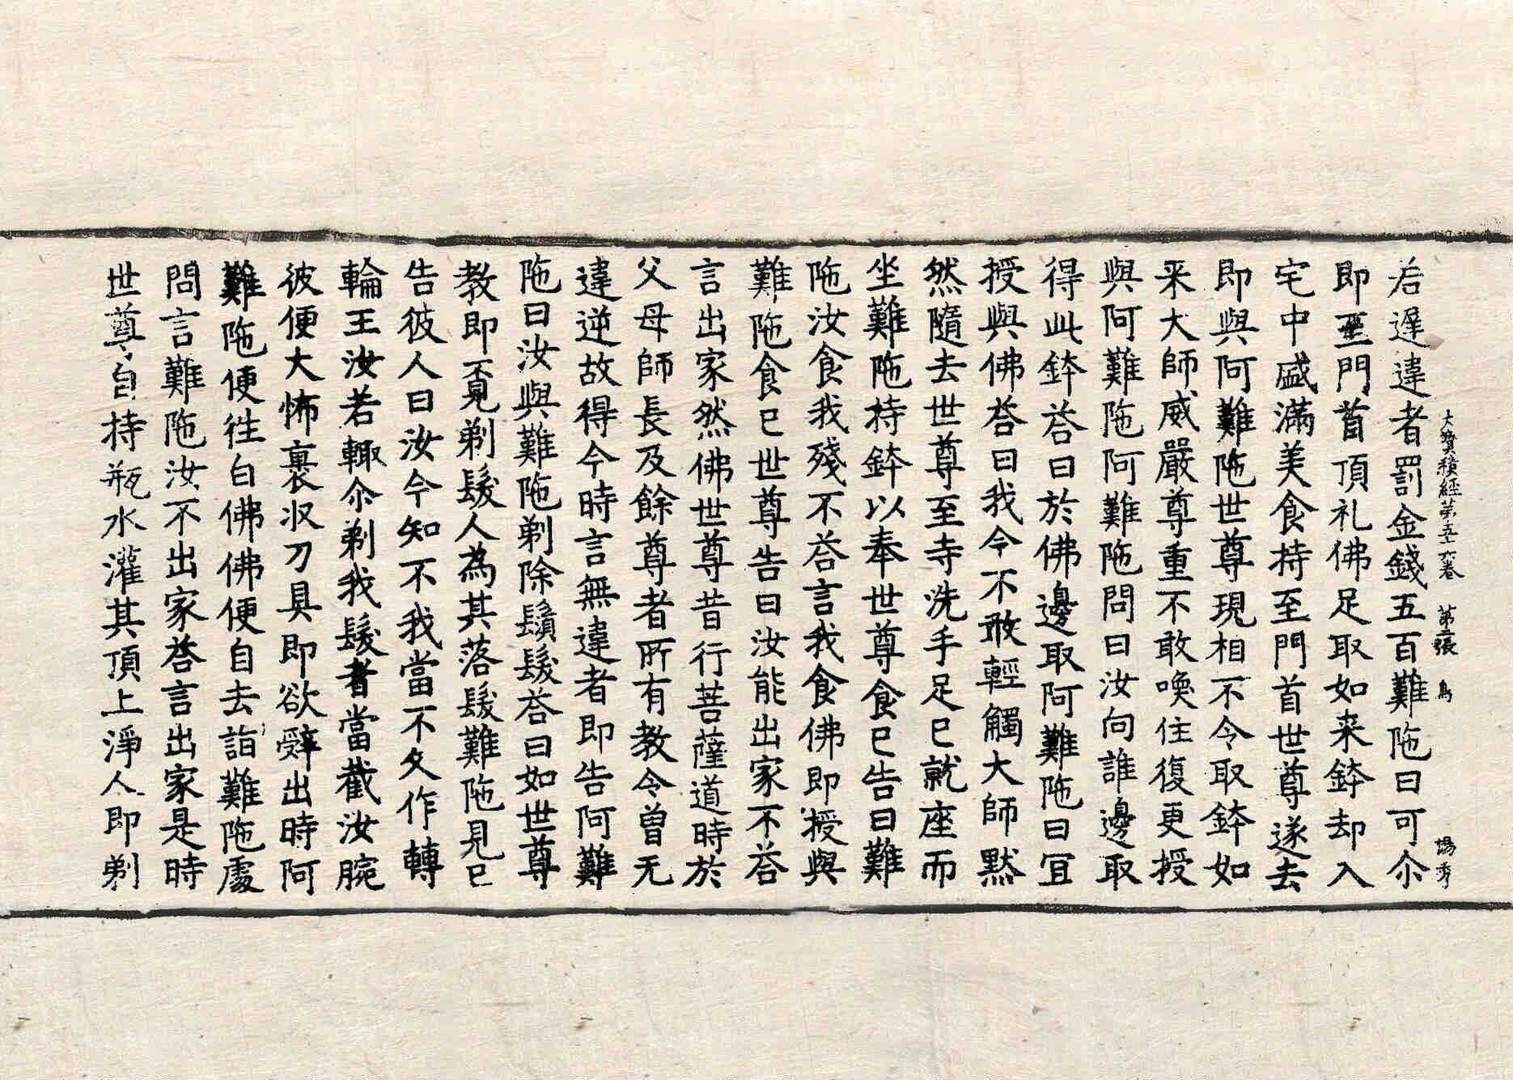 大寶積經第五六卷 第二張 鳥
若遲違者罰金錢五百難陁曰可尒
即至門首頂礼佛足取如来鉢却入
宅中盛滿美食持至門首世尊遂去
即與阿難陁世尊現相不令取鉢如
来大師威嚴尊重不敢喚住復更授
與阿難陁阿難陁問曰汝向誰邊取
得此鉢荅曰於佛邊取阿難陁曰冝
授與佛荅曰我今不敢輕觸大師默
然隨去世尊至寺洗手足已就座而
坐難陁持鉢以奉世尊食已告曰難
陁汝食我殘不荅言我食佛即授與
難陁食已世尊告曰汝能出家不荅
言出家然佛世尊昔行菩薩道時於
父母師長及餘尊者所有教令曾无
違逆故得今時言無違者即告阿難
陁曰汝與難陁剃除鬚髮荅曰如世尊
教即覔剃髮人為其落髮難陁見已
告彼人曰汝今知不我當不久作轉
輪王汝若輙尒剃我髮者當截汝腕
彼便大怖裹収刀具即欲辝出時阿
難陁便往白佛佛便自去詣難陁處
問言難陁汝不出家荅言出家是時
世尊自持瓶水灌其頂上淨人即剃